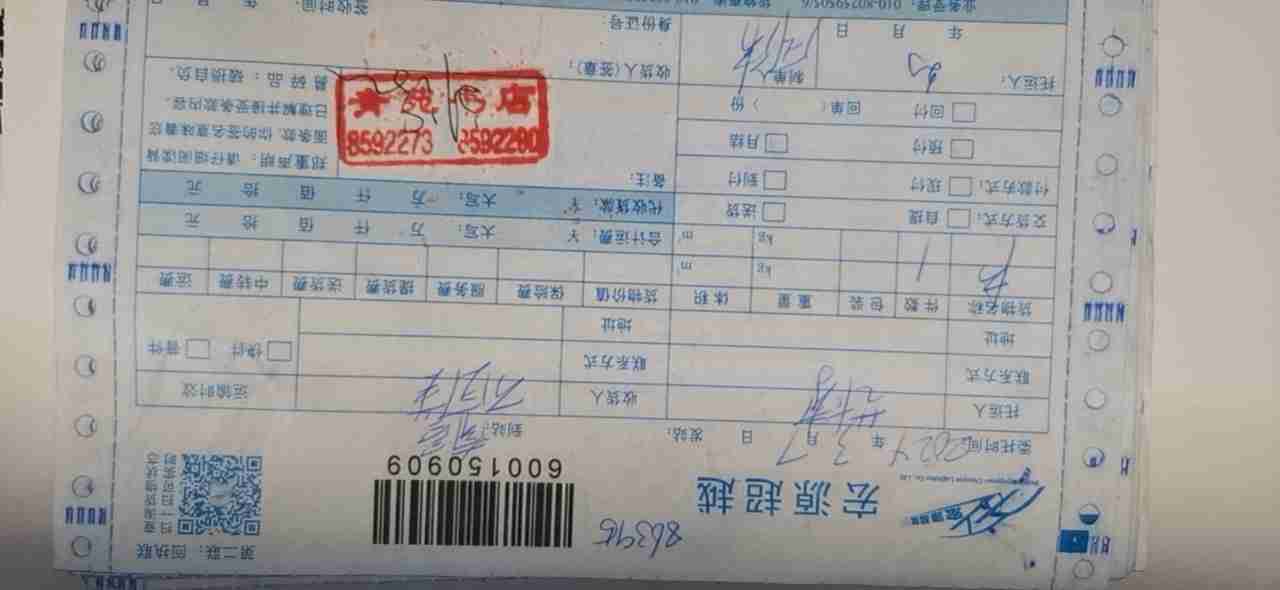 第二联：回执联
宏源超越
863915
600150909
扫一扫可实时
查询货物状态
委托时间 2024 年 3 月 7 日 发站： 到站：
托运人 收货人 运输时效
联系方式 联系方式 快件 普件
地址 地址
货物名称 件数 包装 重量 体积 货物价值 保险费 服务费 提货费 送货费 中转费 运费
1 kg m³
kg m³
合计运费：￥ 大写： 万 仟 佰 拾 元
交货方式： 自提 送货 代收货款：￥ 大写： 万 仟 佰 拾 元
付款方式： 现付 到付 备注：
预付 月结
回付 回单（ ）份
郑重声明：请仔细阅读背
面条款，你的签名意味着您
已理解并接受条款内容。
易碎品：破损自负。
8592273 8592280
托运人： 制单人 收货人（签章）：
年 月 日 身份证号：
签收时间： 年 月 日
业务受理：010-80259505/6